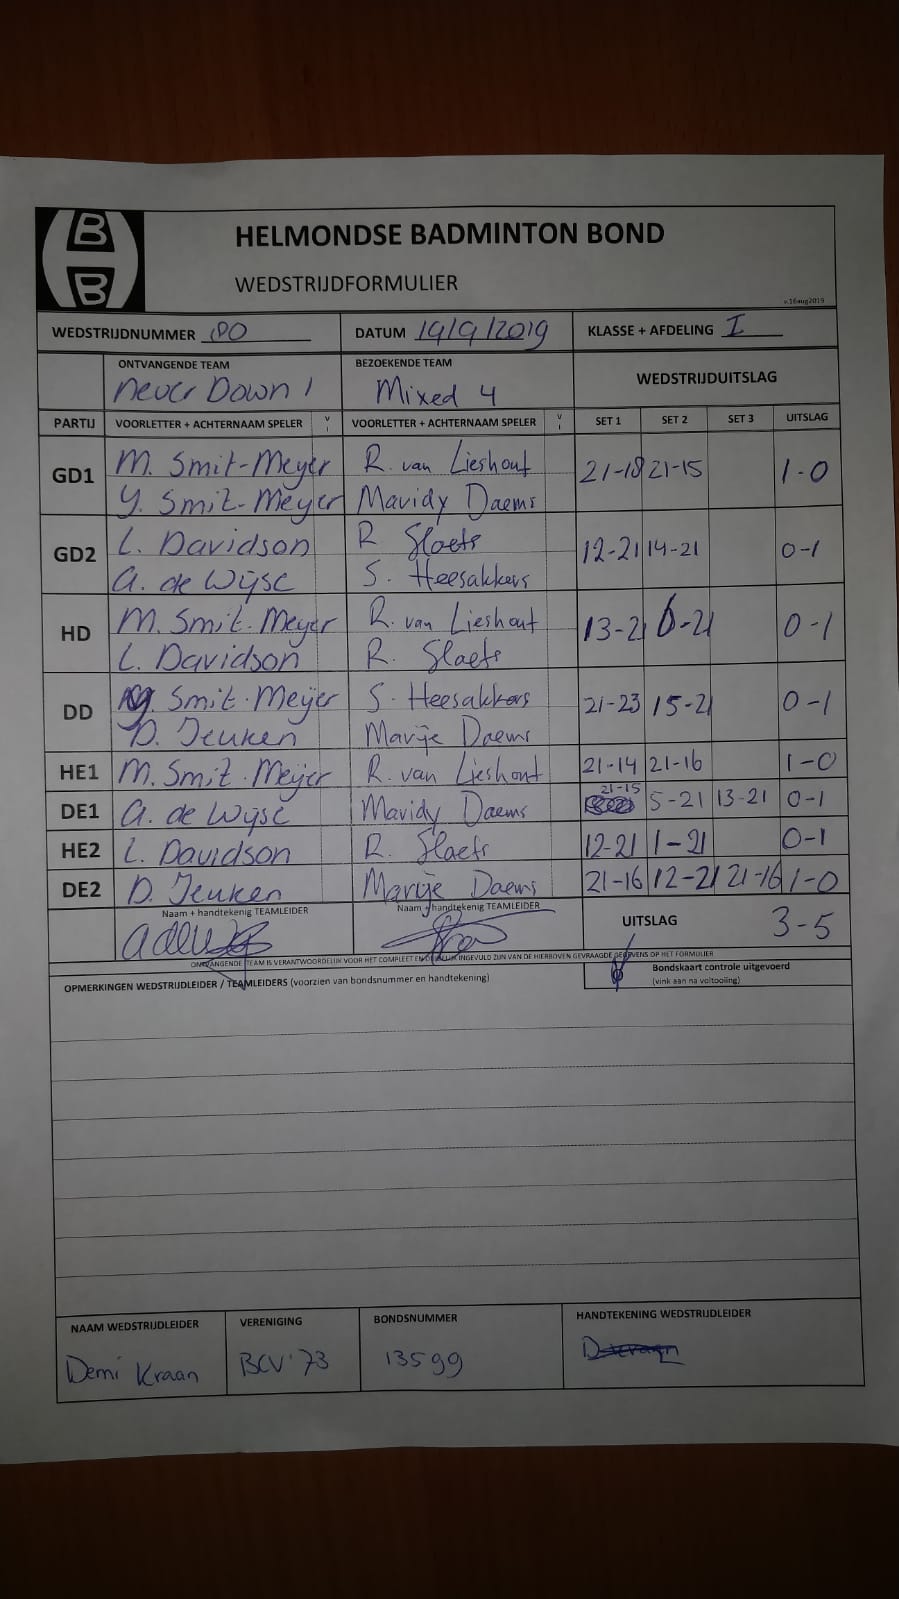 HELMONDSE BADMINTON BOND
WEDSTRIJDFORMULIER
v.16aug2019
WEDSTRIJDNUMMER
DATUM 19/9/2019
KLASSE + AFDELING I
ONTVANGENDE TEAM
never Down 1
BEZOEKENDE TEAM
Mixed 4
WEDSTRIJDUITSLAG
PARTIJ VOORLETTER + ACHTERNAAM SPELER V I VOORLETTER + ACHTERNAAM SPELER V I SET 1 SET 2 SET 3 UITSLAG
GD1 M. Smit-Meyer R. van Lieshout 21-18 21-15 1-0
Y. Smit-Meyer Mavidy Daems
GD2 L. Davidson R Slaets 12-21 14-21 0-1
a. de Wijse S. Heesakkers
HD M. Smit-Meyer R. van Lieshout 13-21 6-21 0-1
L. Davidson R. Slaets
DD Y. Smit-Meijer S. Heesakkers 21-23 15-21 0-1
D. Jeuken Marije Daems
HE1 M. Smit-Meijer R. van Lieshout 21-14 21-16 1-0
DE1 a. de Wijse Mavidy Daems 21-15 5-21 13-21 0-1
HE2 L. Davidson R. Slaets 12-21 1-21 0-1
DE2 D. Jeuken Marije Daems 21-16 12-21 21-16 1-0
Naam + handtekenig TEAMLEIDER
Naam + handtekenig TEAMLEIDER
UITSLAG 3-5
ONTVANGENDE TEAM IS VERANTWOORDELIJK VOOR HET COMPLEET EN DUIDELIJK INGEVULD ZIJN VAN DE HIERBOVEN GEVRAAGDE GEGEVENS OP HET FORMULIER
OPMERKINGEN WEDSTRIJDLEIDER / TEAMLEIDERS (voorzien van bondsnummer en handtekening)
Bondskaart controle uitgevoerd
(vink aan na voltooiing)
NAAM WEDSTRIJDLEIDER
Demi Kraan
VERENIGING
BCV'73
BONDSNUMMER
13599
HANDTEKENING WEDSTRIJDLEIDER